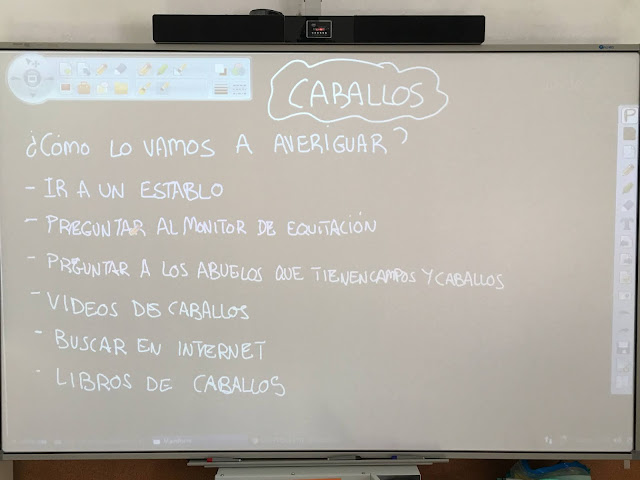 CABALLOS
¿CÓMO LO VAMOS A AVERIGUAR?
- IR A UN ESTABLO
- PREGUNTAR AL MONITOR DE EQUITACIÓN
- PREGUNTAR A LOS ABUELOS QUE TIENEN CAMPOS Y CABALLOS
- VIDEOS DE CABALLOS
- BUSCAR EN INTERNET
- LIBROS DE CABALLOS